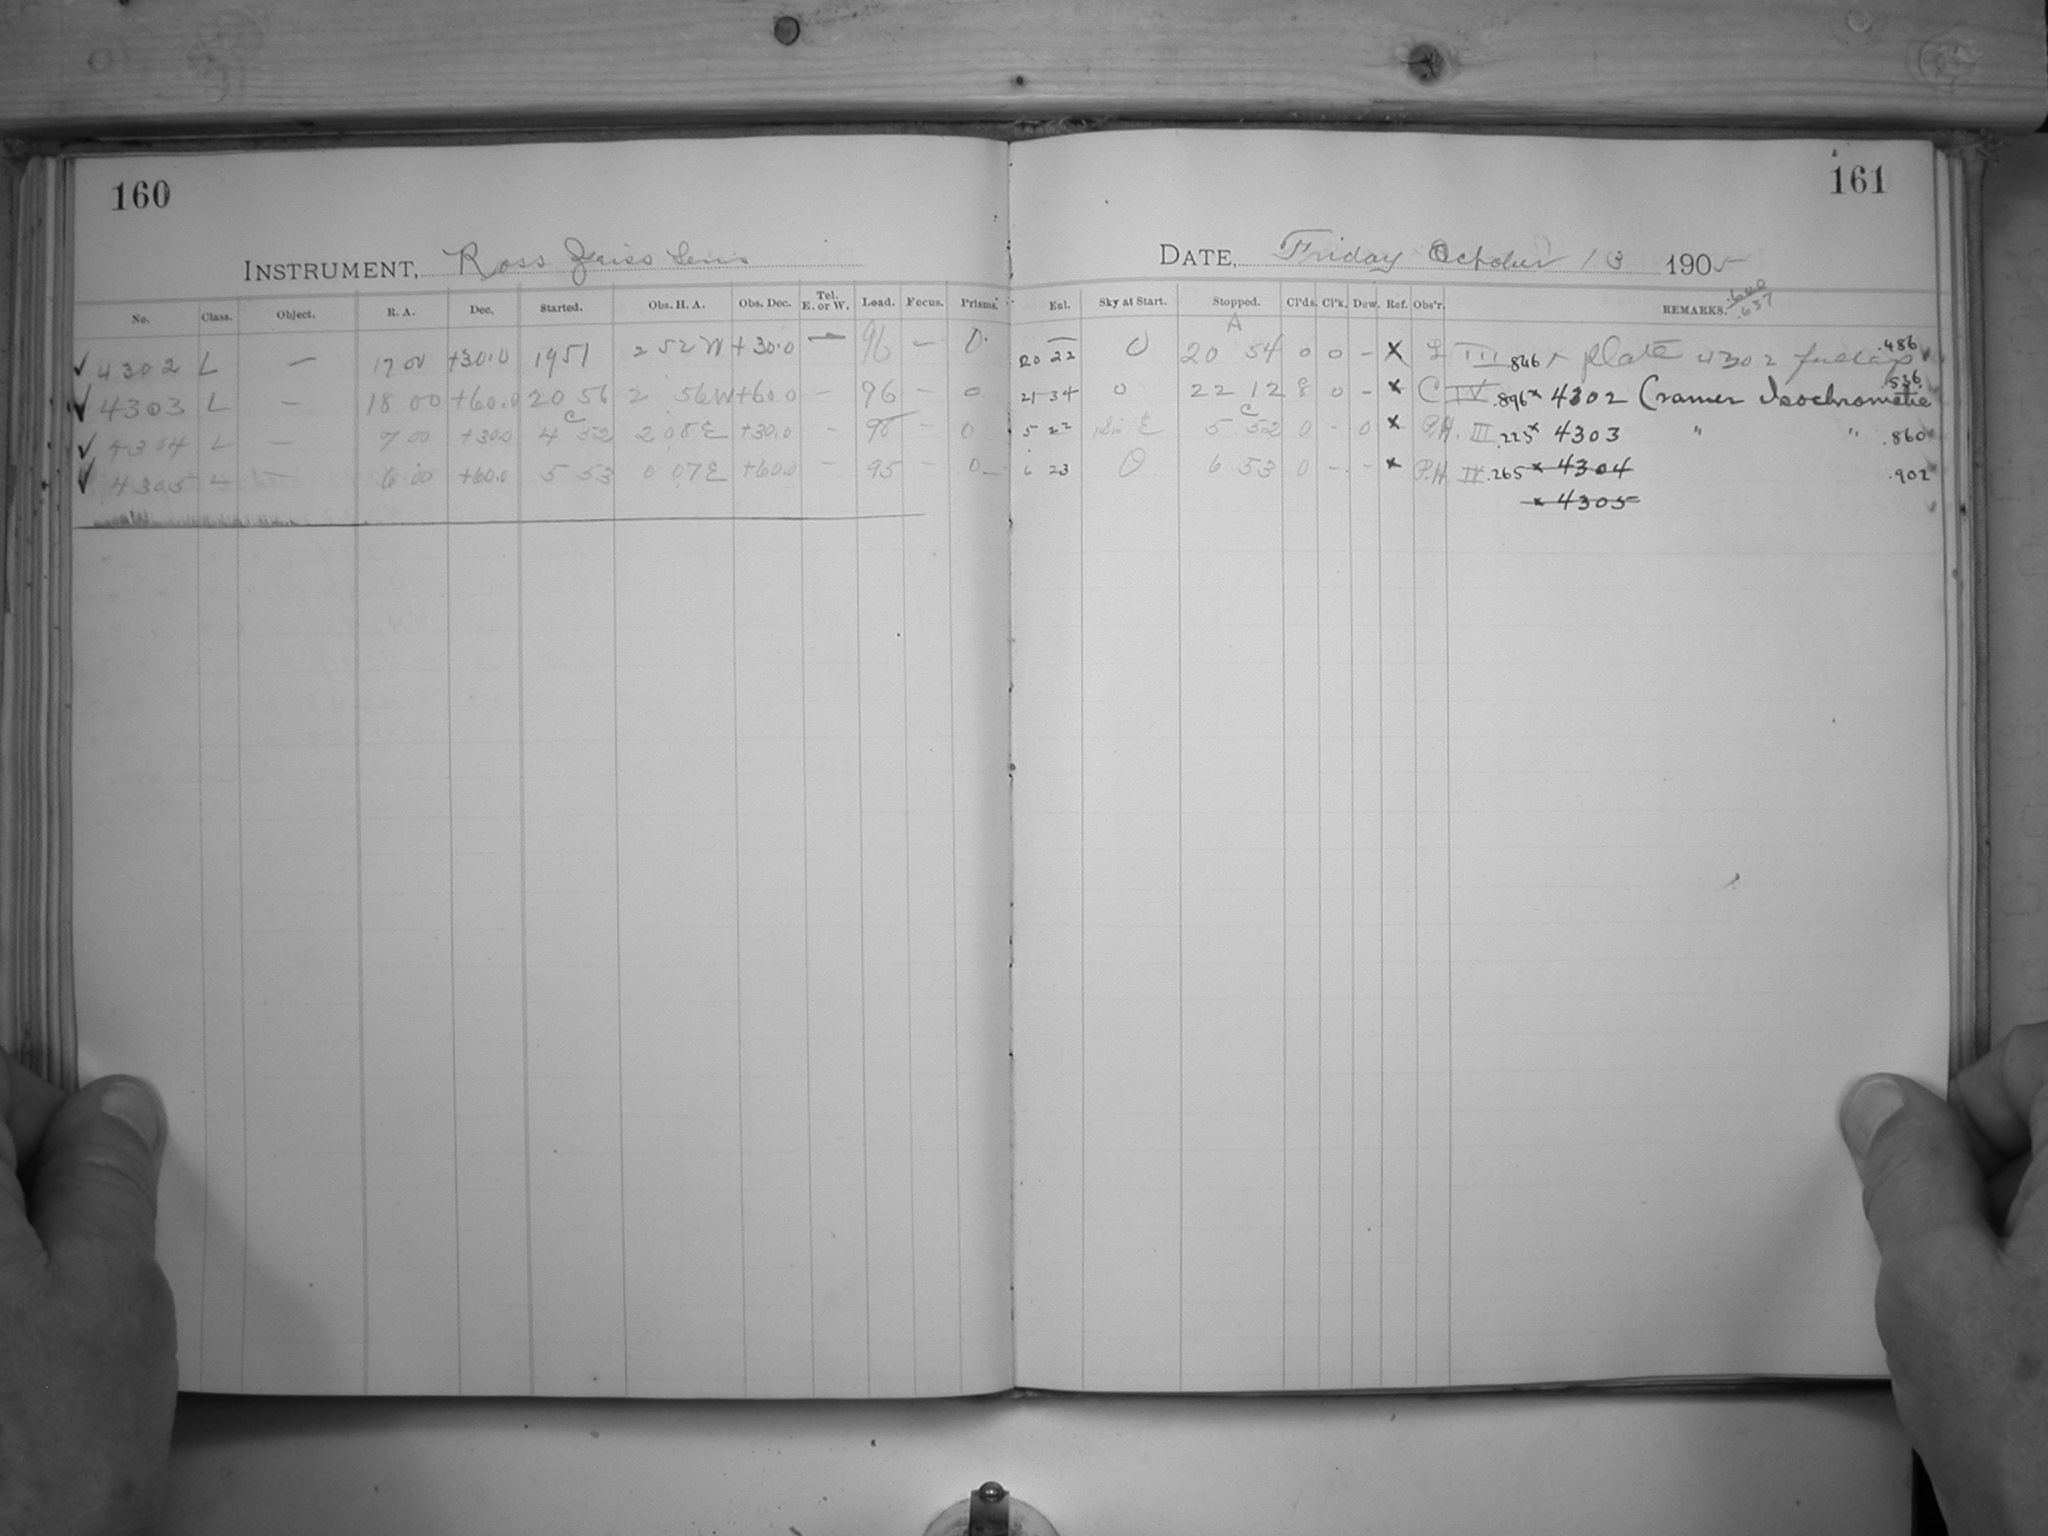 160
INSTRUMENT, Ross Zeiss Lens
No. Class. Object. R. A. Dec. Started. Obs. H. A. Obs. Dec. Tel. E. or W. Load. Focus. Prisms.
✓ 4302 L — 17 00 +30.0 19 51 2 52 W +30.0 — 96 — 0
✓ 4303 L — 18 00 +60.0 20 56 2 56 W +60.0 — 96 — 0
✓ 4304 L — 7 00 +30.0 4 52 2 08 E +30.0 - 96 - 0
✓ 4305 L — 6 00 +60.0 5 53 0 07 E +60.0 - 95 - 0
161
DATE, Friday October 13 1905
Enl. Sky at Start. Stopped. Cl'ds. Cl'k. Dew. Ref. Obs'r. REMARKS. .637
20 22 0 20 54 0 0 - X L III .846 x Plate 4302 .486
21 34 0 22 12 8 0 - x C IV .896 x 4302 Cramer Isochromatic .536
5 22 E 5 52 0 - 0 x P.H. III .225 x 4303 " " .860
6 23 0 6 53 0 - - x P.H. IV .265 x 4304 .902
x 4305